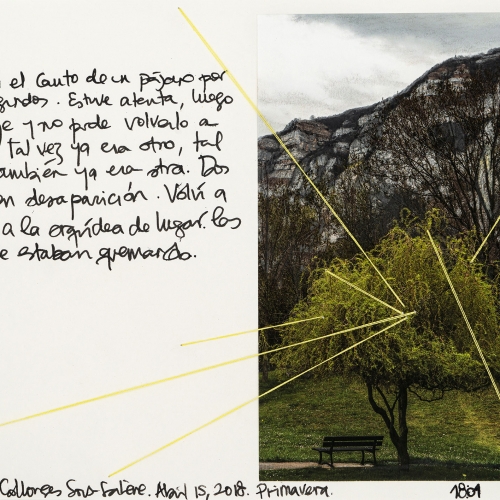 el canto de un pájaro por
undos. Estuve atenta, luego
e y no pude volverlo a
tal vez ya era otro, tal
también ya era otra. Dos
en desaparición. Volví a
a la orquídea de lugar. Los
e estaban quemando.
Collonges Sous Salève. Abril 15, 2018. Primavera.